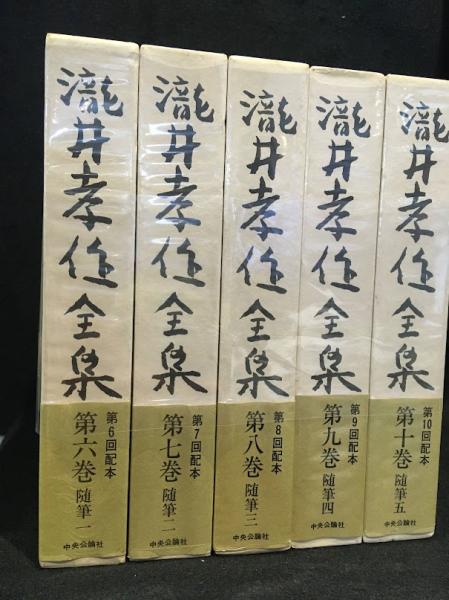 瀧井孝作全集
第6回配本
第六巻 随筆一
中央公論社
瀧井孝作全集
第7回配本
第七巻 随筆二
中央公論社
瀧井孝作全集
第8回配本
第八巻 随筆三
中央公論社
瀧井孝作全集
第9回配本
第九巻 随筆四
中央公論社
瀧井孝作全集
第10回配本
第十巻 随筆五
中央公論社